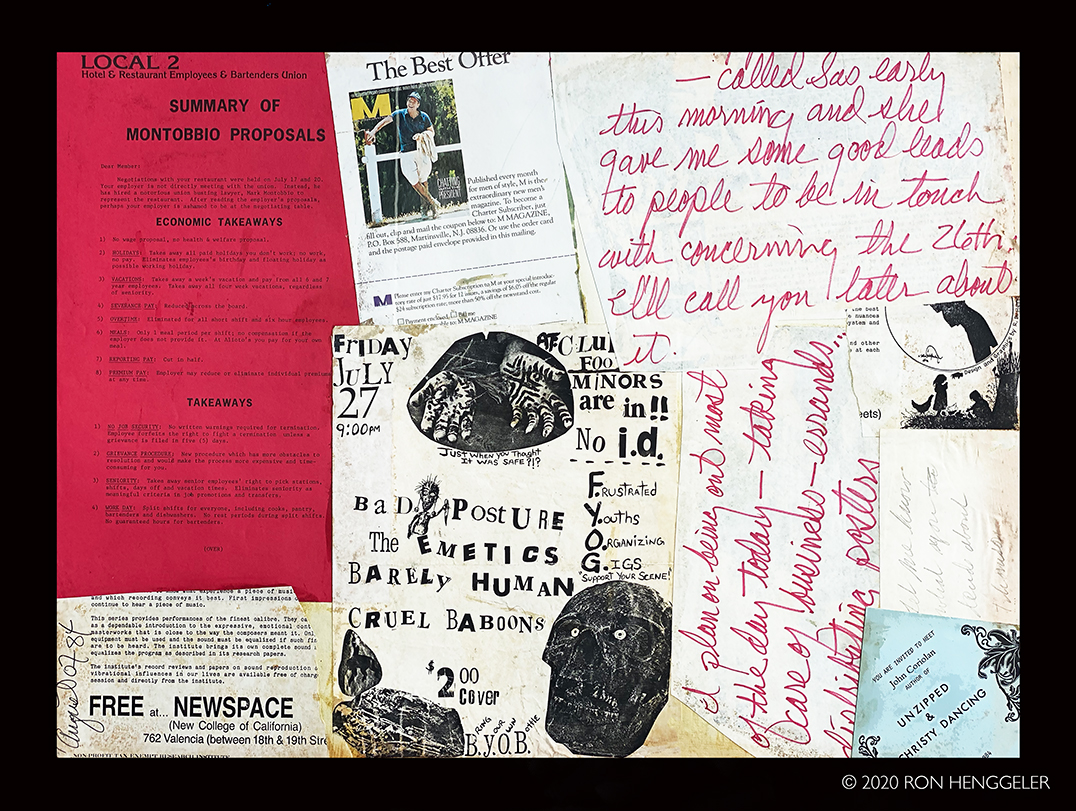 LOCAL 2
Hotel & Restaurant Employees & Bartenders Union
SUMMARY OF
MONTOBBIO PROPOSALS
Dear Member:
Negotiations with your restaurant were held on July 17 and 20.
Your employer is not directly meeting with the union. Instead, he
has hired a notorious union busting lawyer, Mark Montobbio to
represent the restaurant. After reading the employer's proposals,
perhaps your employer is ashamed to be at the negotiating table.
ECONOMIC TAKEAWAYS
1) No wage proposal, no health & welfare proposal.
2) HOLIDAYS: Take away all paid holidays you don't work; no work,
no pay. Eliminates employee's birthday and floating holiday as
possible working holiday.
3) VACATIONS: Takes away a week's vacation and pay from all 6 and 7
year employees. Takes away all four week vacations, regardless
of seniority.
4) SEVERANCE PAY: Reduce across the board.
5) OVERTIME: Eliminated for all short shift and six hour employees.
6) MEALS: Only 1 meal period per shift; no compensation if the
employer does not provide it. At Alioto's you pay for your own
meal.
7) REPORTING PAY: Cut in half.
8) PREMIUM PAY: Employer may reduce or eliminate individual premium
at any time.
TAKEAWAYS
1) NO JOB SECURITY: No written warnings required for termination.
Employee forfeits the right to fight a termination unless a
grievance is filed in five (5) days.
2) GRIEVANCE PROCEDURE: New procedure which has more obstacles to
resolution and would make the process more expensive and time-
consuming for you.
3) SENIORITY: Takes away senior employees' right to pick stations,
shifts, days off and vacation times. Eliminates seniority as
meaningful criteria in job promotions and transfers.
4) WORK DAY: Split shifts for everyone, including cooks, pantry,
bartenders and dishwashers. No rest periods during split shifts.
No guaranteed hours for bartenders.
(OVER)
The Best Offer
M
Published every month
for men of style, M is the
extraordinary new men's
magazine. To become a
Charter Subscriber, just
fill out, clip and mail the coupon below to: M MAGAZINE,
P.O. Box 588, Martinville, N.J. 08836. Or use the order card
and the postage paid envelope provided in this mailing.
M Please enter my Charter Subscription to M at your special introduc-
tory rate of just $17.95 for 12 issues, a savings of $6.05 off the regular
$24 subscription rate; more than 50% off the newsstand cost.
Payment enclosed. Bill me
to: M MAGAZINE
— called Sas early
this morning and she
gave me some good leads
to people to be in touch
with concerning the 26th.
I'll call you later about
it.
I plan on being out most
of the day today — taking
care of business — errands...
distributing posters
FRIDAY
JULY
27
9:00PM
CLUB
FOO
MINORS
are in!!
No i.d.
JUST WHEN YOU THOUGHT
IT WAS SAFE?!?
BaD POSTURE
The EMETICS
BARELY HUMAN
CRUEL BABOONS
$2.00
cover
FRUSTRATED
YOUTHS
ORGANIZING
GIGS
"SUPPORT YOUR SCENE!"
BRING YOUR OWN BOTTLE
B.Y.O.B.
and which recording conveys it best. First impressions
continue to hear a piece of music.
This series provides performances of the finest calibre. They ca
as a dependable introduction to the expressive, emotional cont
masterworks that is close to the way the composers meant it. Onl
equipment must be used and the sound must be equalized if such fi
are to be heard. The institute brings its own complete sound
equalizes the program as described in its research papers.
The institute's record reviews and papers on sound reproduction
vibrational influences in our lives are available free of charg
session and directly from the institute.
FREE at... NEWSPACE
(New College of California)
762 Valencia (between 18th & 19th Stre
NON PROFIT TAX EXEMPT RESEARCH INSTITUTE
August 20 1984
the best
nuances
system and
nd other
e at each
eets)
Design and
YOU ARE INVITED TO MEET
John Coriolan
AUTHOR OF
UNZIPPED
&
CHRISTY DANCING
© 2020 RON HENGGELER